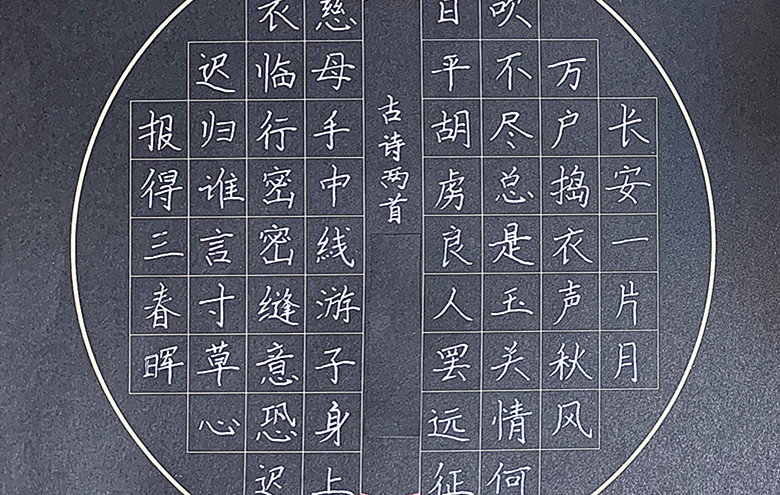 长安一片月
万户捣衣声秋风
吹不尽总是玉关情何
日平胡虏良人罢远征
古诗两首
慈母手中線游子身上
衣临行密密缝意恐迟
迟归谁言寸草心
报得三春晖